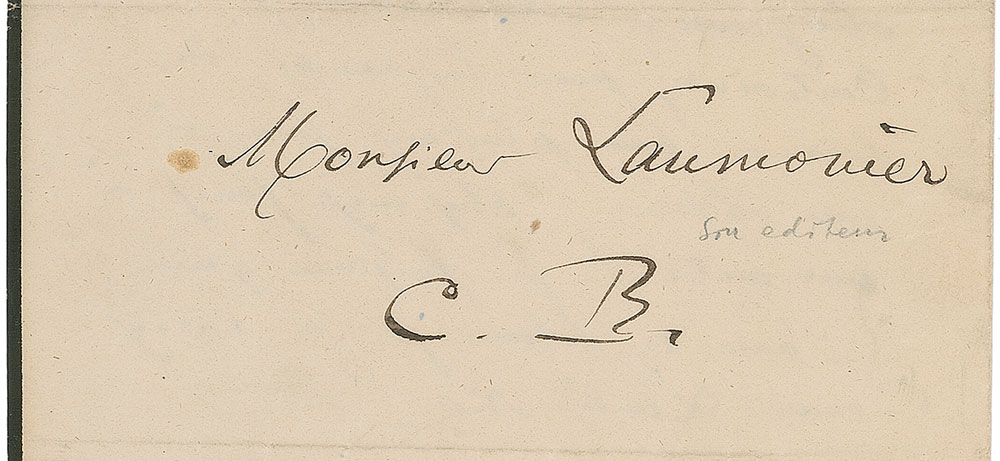 Monsieur Laumonier
son editeur
C. B.